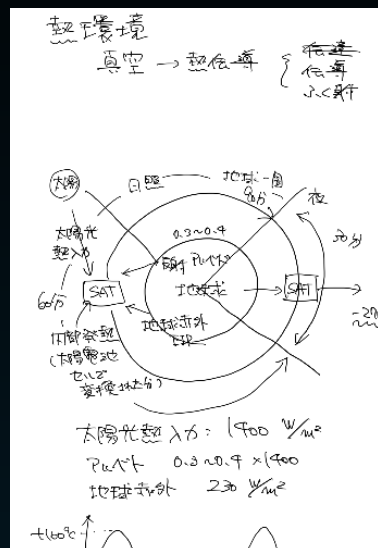 熱環境
真空 → 熱伝導
伝達
伝導
ふく射
太陽
日照
地球一周
90分
夜
太陽光
熱入力
0.3~0.4
30分
アルベド
60分
SAT
地球
SAT
地球赤外
内部発熱
(太陽電池
セルで
変換された分)
太陽光熱入力: 1400 W/m²
アルベド 0.3~0.4 ×1400
地球赤外 230 W/m²
+100℃